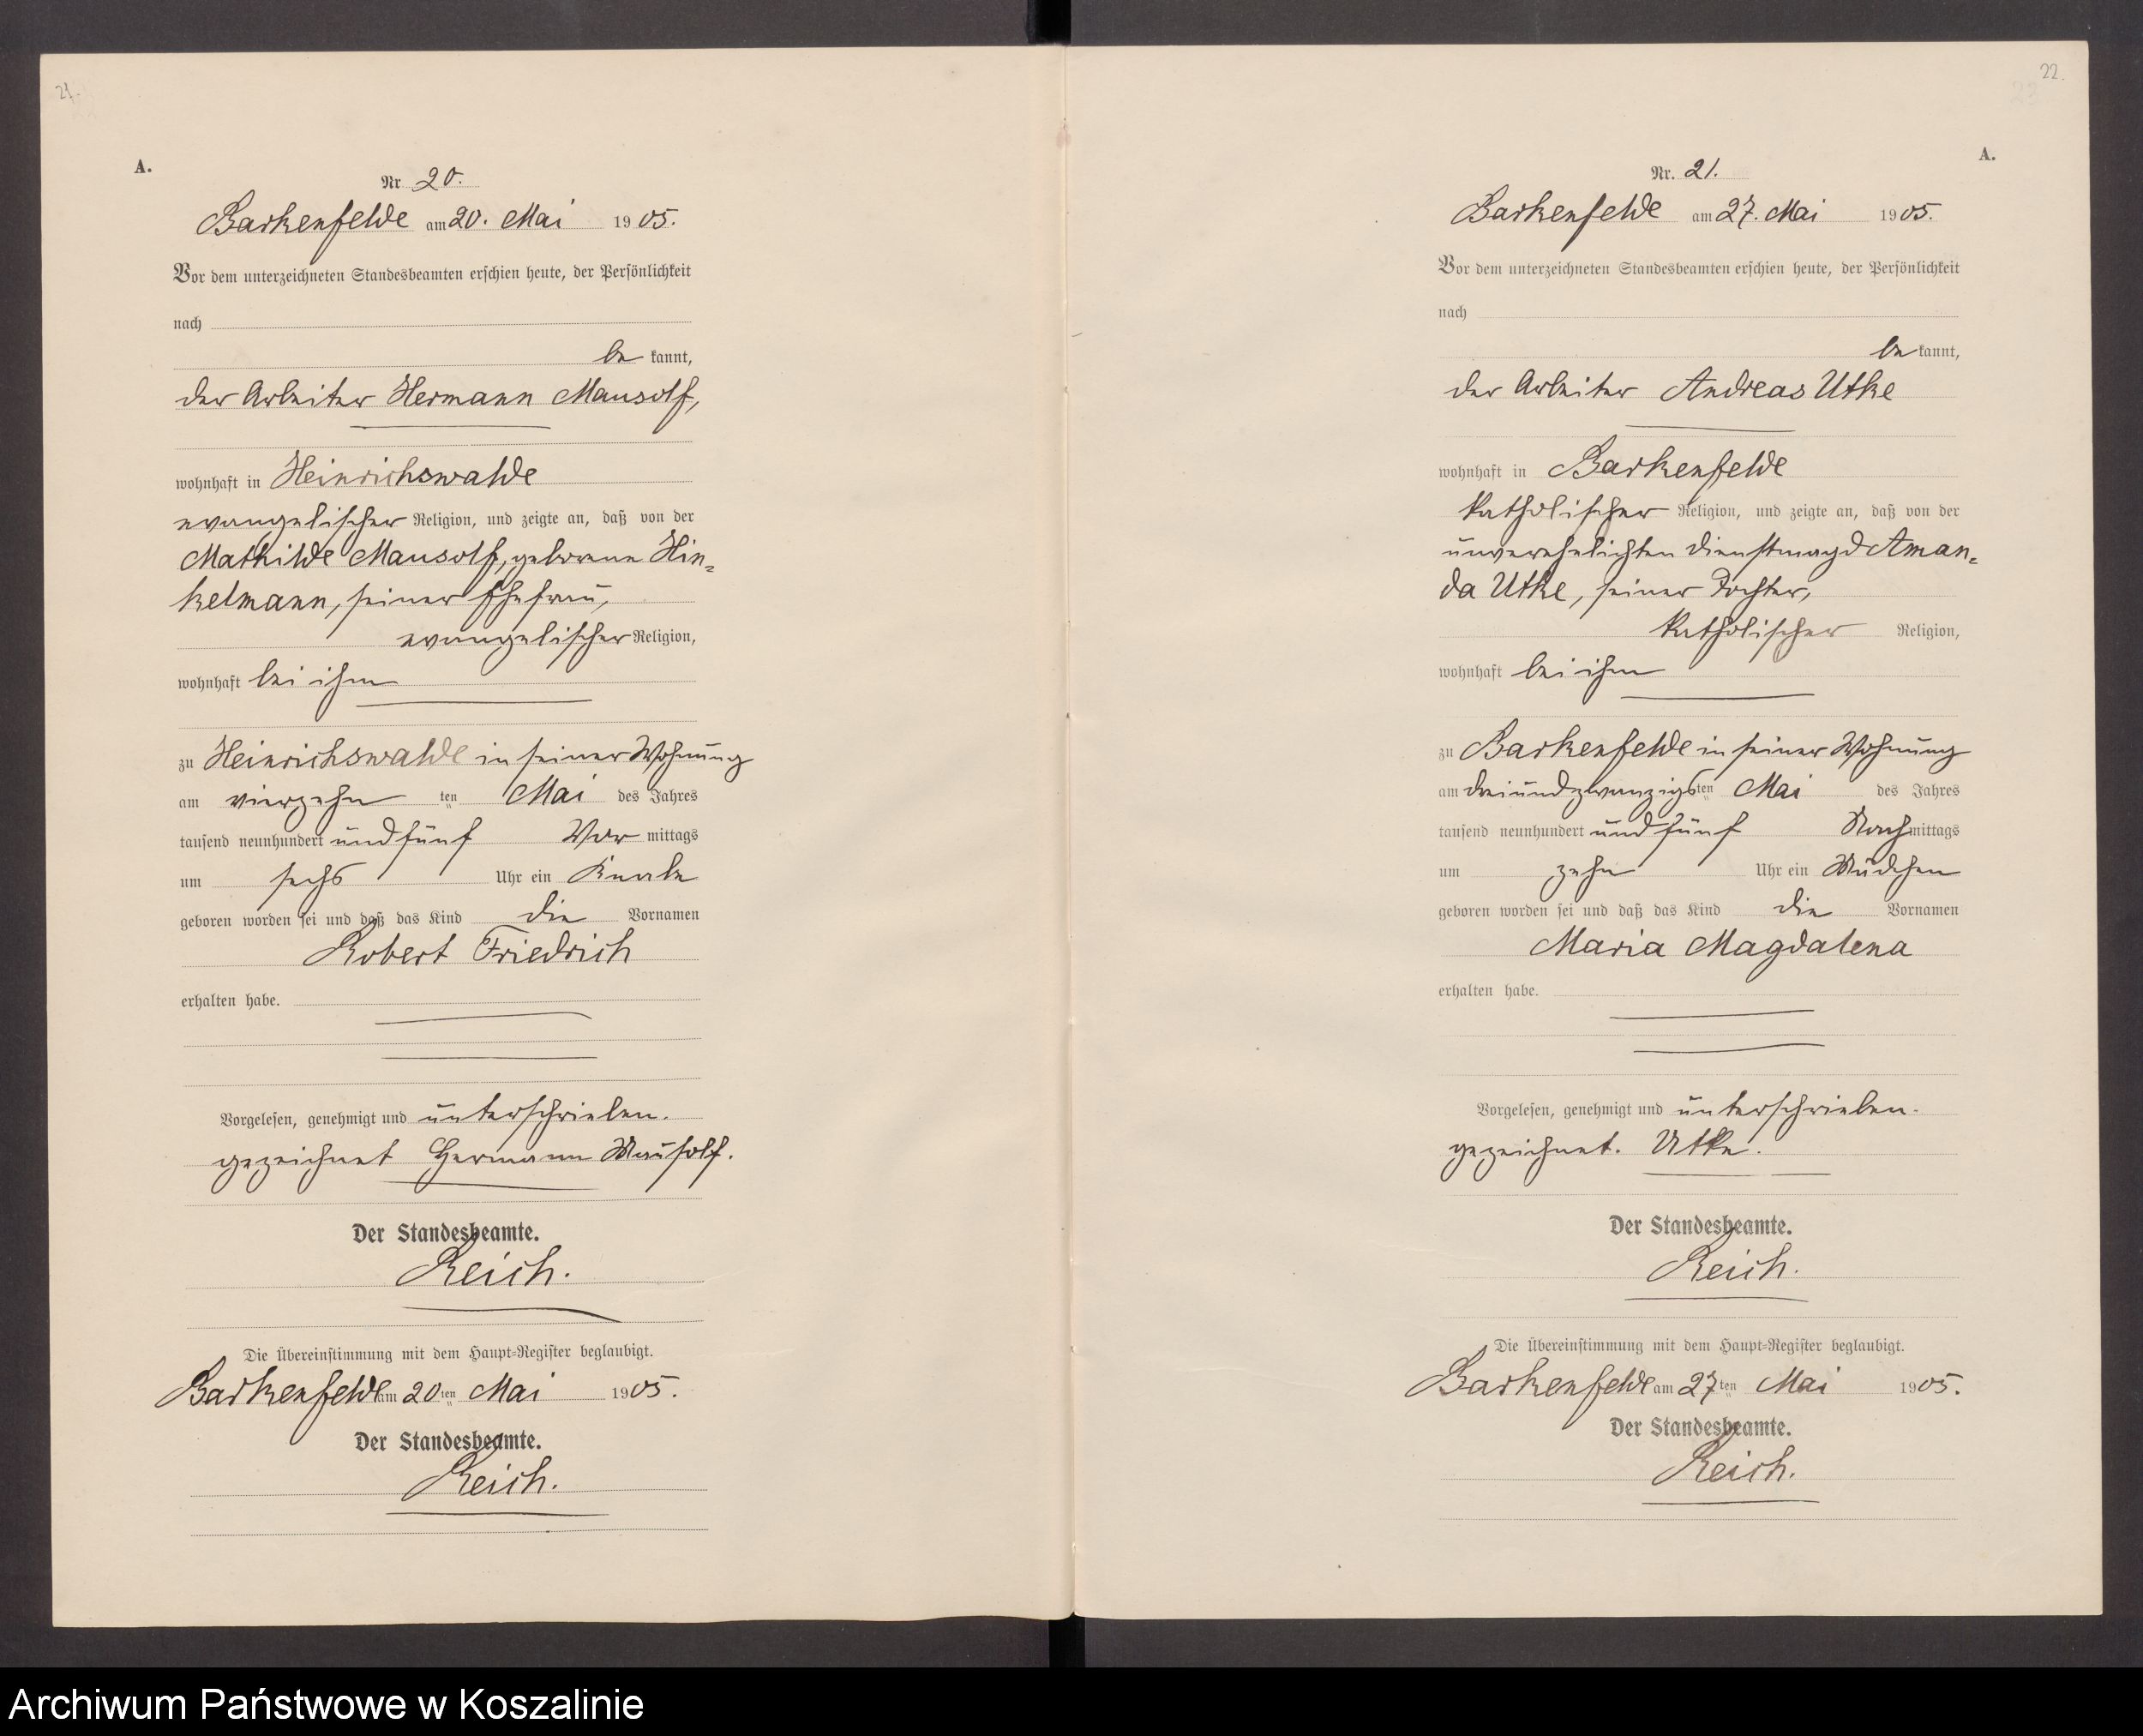 21.
A.
Nr 20.
Barkenfelde am 20. Mai 1905.
Vor dem unterzeichneten Standesbeamten erschien heute, der Persönlichkeit
nach
be kannt,
der Arbeiter Hermann Mausolf,
wohnhaft in Heinrichswalde
evangelischer Religion, und zeigte an, daß von der
Mathilde Mausolf, geborene Hin=
kelmann, seiner Ehefrau,
evangelischer Religion,
wohnhaft bei ihm
zu Heinrichswalde in seiner Wohnung
am vierzehn ten Mai des Jahres
tausend neunhundert und fünf Vor mittags
um sechs Uhr ein Knabe
geboren worden sei und daß das Kind die Vornamen
Robert Friedrich
erhalten habe.
Vorgelesen, genehmigt und unterschrieben.
gezeichnet Hermann Mausolf.
Der Standesbeamte.
Reich.
Die Übereinstimmung mit dem Haupt-Register beglaubigt.
Barkenfelde am 20ten Mai 1905.
Der Standesbeamte.
Reich.
22.
A.
Nr. 21.
Barkenfelde am 27. Mai 1905.
Vor dem unterzeichneten Standesbeamten erschien heute, der Persönlichkeit
nach
be kannt,
der Arbeiter Andreas Utke
wohnhaft in Barkenfelde
katholischer Religion, und zeigte an, daß von der
unverehelichten Dienstmagd Aman=
da Utke, seiner Tochter,
katholischer Religion,
wohnhaft bei ihm
zu Barkenfelde in seiner Wohnung
am dreiundzwanzigsten Mai des Jahres
tausend neunhundert und fünf Nachmittags
um zehn Uhr ein Mädchen
geboren worden sei und daß das Kind die Vornamen
Maria Magdalena
erhalten habe.
Vorgelesen, genehmigt und unterschrieben.
gezeichnet. Utke.
Der Standesbeamte.
Reich.
Die Übereinstimmung mit dem Haupt-Register beglaubigt.
Barkenfelde am 27ten Mai 1905.
Der Standesbeamte.
Reich.
Archiwum Państwowe w Koszalinie